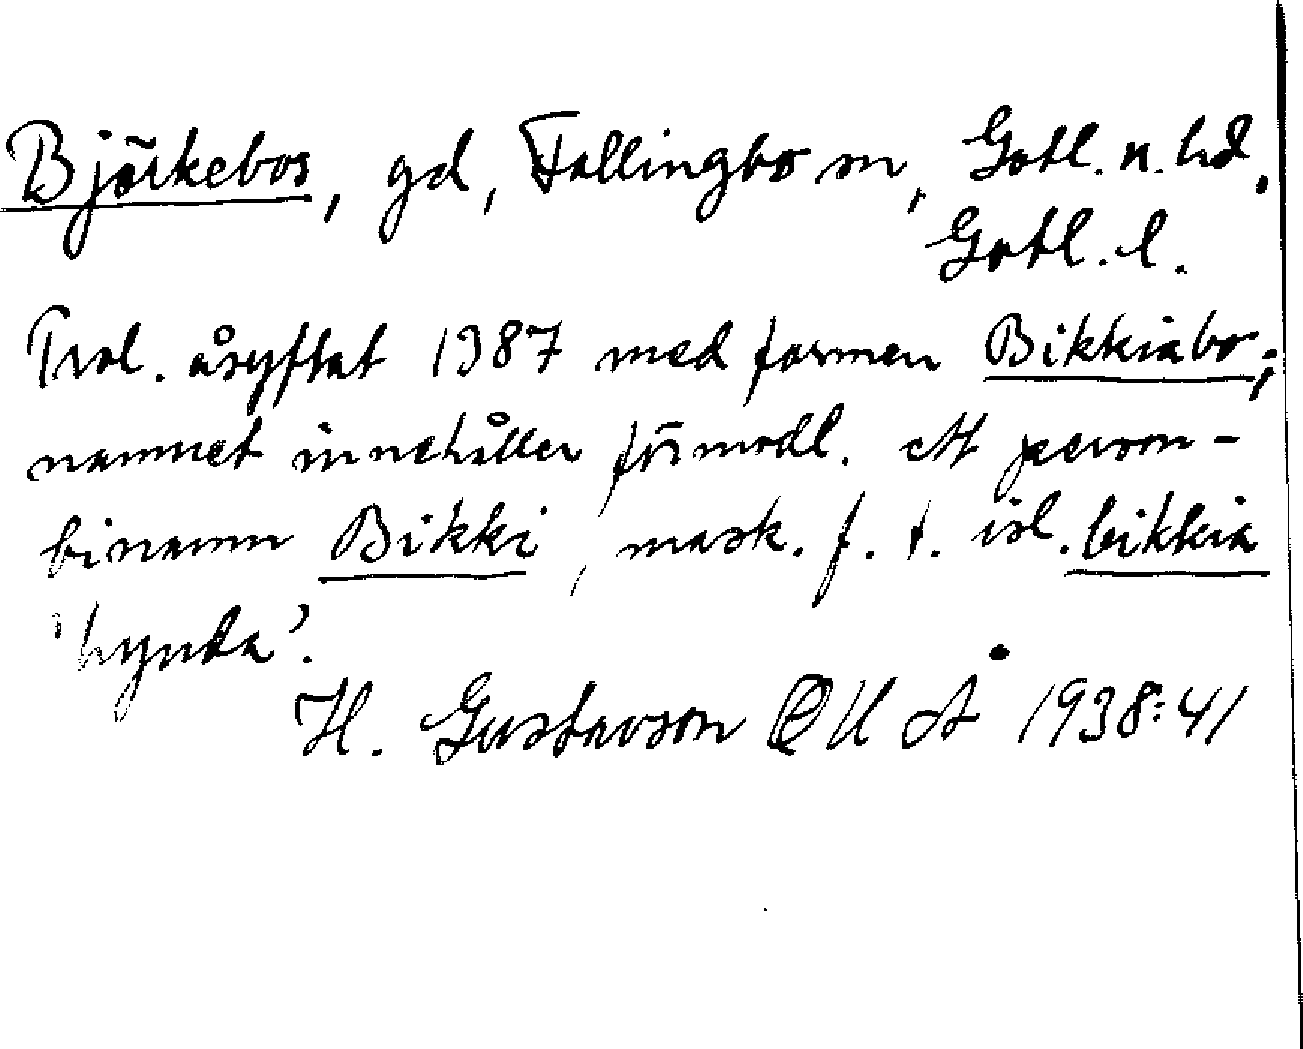 Björkebos, gd, Follingbo sn, Gotl. n. hd,
Gotl. l.
Trol. åsyftat 1387 med formen Bikkiabo;
namnet innehåller förmodl. ett person-
binamn Bikki, mask. f. t. isl. bikkia
'hynda'.
H. Gustavson GUÅ 1938:41